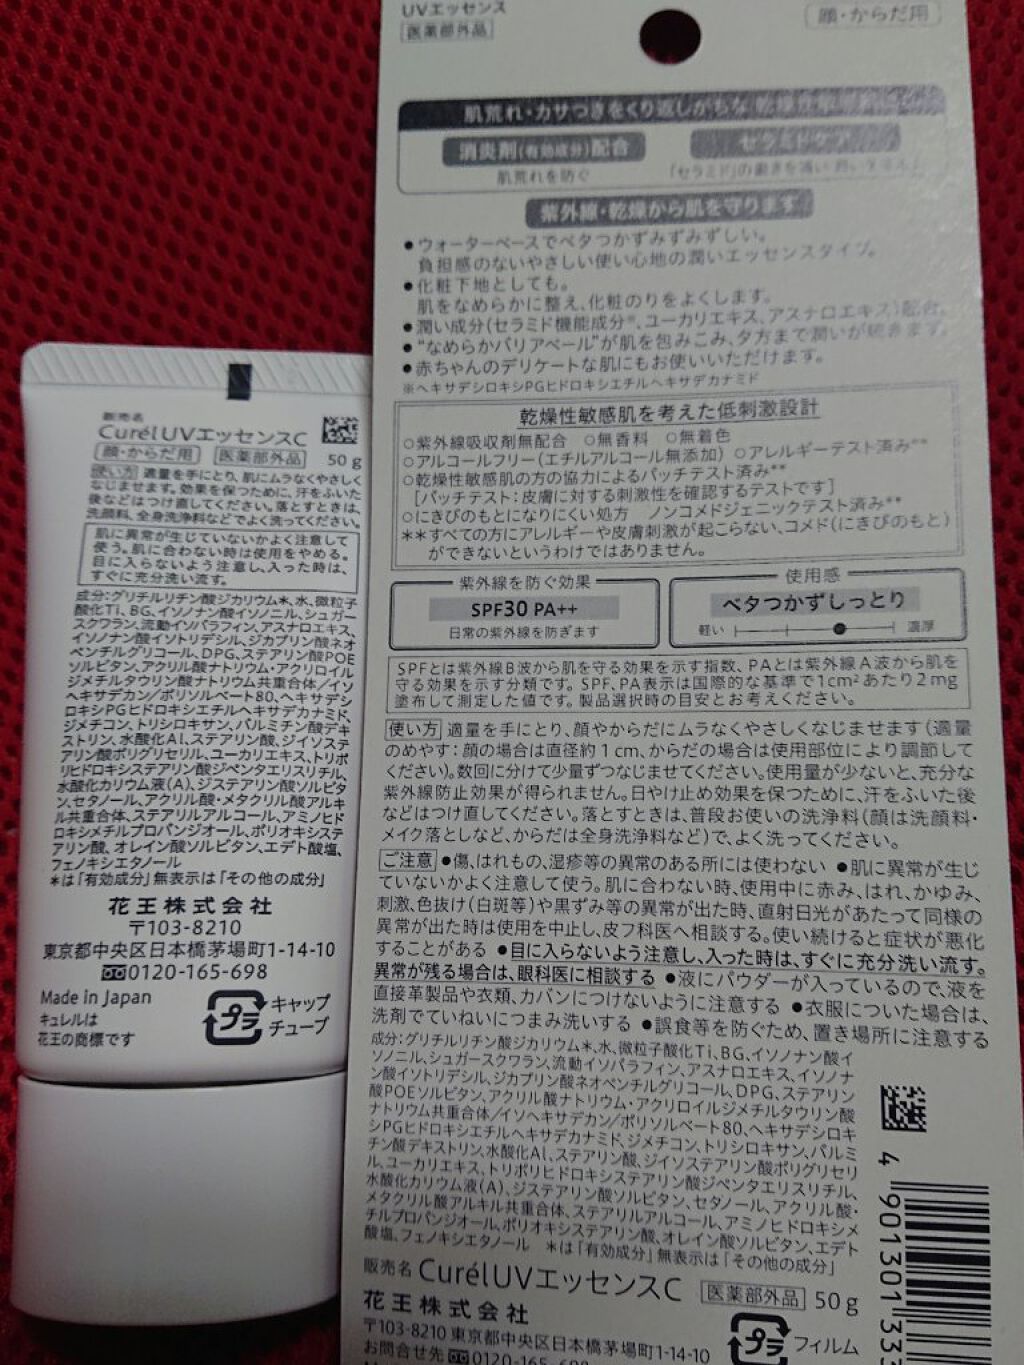 販売名
CurélUVエッセンスC
顔・からだ用 医薬部外品 50g
使い方 適量を手にとり、肌にムラなくやさしく
なじませます。効果を保つために、汗をふいた
後などはつけ直してください。落とすときは、
洗顔料、全身洗浄料などでよく洗ってください。
肌に異常が生じていないかよく注意して
使う。肌に合わない時は使用をやめる。
目に入らないよう注意し、入った時は、
すぐに充分洗い流す。
成分:グリチルリチン酸ジカリウム*、水、微粒子
酸化Ti、BG、イソノナン酸イソノニル、シュガー
スクワラン、流動イソパラフィン、アスナロエキス、
イソノナン酸イソトリデシル、ジカプリン酸ネオ
ペンチルグリコール、DPG、ステアリン酸POE
ソルビタン、アクリル酸ナトリウム・アクリロイル
ジメチルタウリン酸ナトリウム共重合体/イソ
ヘキサデカン/ポリソルベート80、ヘキサデシ
ロキシPGヒドロキシエチルヘキサデカナミド、
ジメチコン、トリシロキサン、パルミチン酸デキ
ストリン、水酸化Al、ステアリン酸、ジイソステ
アリン酸ポリグリセリル、ユーカリエキス、トリポ
リヒドロキシステアリン酸ジペンタエリスリチル、
水酸化カリウム液(A)、ジステアリン酸ソルビタ
ン、セタノール、アクリル酸・メタクリル酸アルキ
ル共重合体、ステアリルアルコール、アミノヒド
ロキシメチルプロパンジオール、ポリオキシステ
アリン酸、オレイン酸ソルビタン、エデト酸塩、
フェノキシエタノール
*は「有効成分」無表示は「その他の成分」
花王株式会社
〒103-8210
東京都中央区日本橋茅場町1-14-10
0120-165-698
Made in Japan
キュレルは
花王の商標です
プラ キャップ
チューブ
UVエッセンス
医薬部外品
顔・からだ用
肌荒れ・カサつきをくり返しがちな 乾燥性敏感肌に
消炎剤(有効成分)配合
肌荒れを防ぐ
セラミドケア
「セラミド」の働きを補い
紫外線・乾燥から肌を守ります
●ウォーターベースでベタつかずみずみずしい。
負担感のないやさしい使い心地の潤いエッセンスタイプ。
●化粧下地としても。
肌をなめらかに整え、化粧のりをよくします。
●潤い成分(セラミド機能成分※、ユーカリエキス、アスナロエキス)配合。
●“なめらかバリアベール”が肌を包みこみ、夕方まで潤いが続きます。
●赤ちゃんのデリケートな肌にもお使いいただけます。
※ヘキサデシロキシPGヒドロキシエチルヘキサデカナミド
乾燥性敏感肌を考えた低刺激設計
○紫外線吸収剤無配合 ○無香料 ○無着色
○アルコールフリー(エチルアルコール無添加) ○アレルギーテスト済み**
○乾燥性敏感肌の方の協力によるパッチテスト済み**
[パッチテスト:皮膚に対する刺激性を確認するテストです]
○にきびのもとになりにくい処方 ノンコメドジェニックテスト済み**
**すべての方にアレルギーや皮膚刺激が起こらない、コメド(にきびのもと)
ができないというわけではありません。
紫外線を防ぐ効果
SPF30 PA++
日常の紫外線を防ぎます
使用感
ベタつかずしっとり
軽い 濃厚
SPFとは紫外線B波から肌を守る効果を示す指数、PAとは紫外線A波から肌を
守る効果を示す分類です。SPF、PA表示は国際的な基準で1cm²あたり2mg
塗布して測定した値です。製品選択時の目安とお考えください。
使い方 適量を手にとり、顔やからだにムラなくやさしくなじませます(適量
のめやす:顔の場合は直径約1cm、からだの場合は使用部位により調節して
ください)。数回に分けて少量ずつなじませてください。使用量が少ないと、充分な
紫外線防止効果が得られません。日やけ止め効果を保つために、汗をふいた後
などはつけ直してください。落とすときは、普段お使いの洗浄料(顔は洗顔料・
メイク落としなど、からだは全身洗浄料など)で、よく洗ってください。
ご注意 ●傷、はれもの、湿疹等の異常のある所には使わない ●肌に異常が生じ
ていないかよく注意して使う。肌に合わない時、使用中に赤み、はれ、かゆみ、
刺激、色抜け(白斑等)や黒ずみ等の異常が出た時、直射日光があたって同様の
異常が出た時は使用を中止し、皮フ科医へ相談する。使い続けると症状が悪化
することがある ●目に入らないよう注意し、入った時は、すぐに充分洗い流す。
異常が残る場合は、眼科医に相談する ●液にパウダーが入っているので、液を
直接革製品や衣類、カバンにつけないように注意する ●衣服についた場合は、
洗剤でていねいにつまみ洗いする ●誤食等を防ぐため、置き場所に注意する
成分:グリチルリチン酸ジカリウム*、水、微粒子酸化Ti、BG、イソノナン酸イ
ソノニル、シュガースクワラン、流動イソパラフィン、アスナロエキス、イソノナ
ン酸イソトリデシル、ジカプリン酸ネオペンチルグリコール、DPG、ステアリン
酸POEソルビタン、アクリル酸ナトリウム・アクリロイルジメチルタウリン酸
ナトリウム共重合体/イソヘキサデカン/ポリソルベート80、ヘキサデシロキ
シPGヒドロキシエチルヘキサデカナミド、ジメチコン、トリシロキサン、パルミ
チン酸デキストリン、水酸化Al、ステアリン酸、ジイソステアリン酸ポリグリセリ
ル、ユーカリエキス、トリポリヒドロキシステアリン酸ジペンタエリスリチル、
水酸化カリウム液(A)、ジステアリン酸ソルビタン、セタノール、アクリル酸・
メタクリル酸アルキル共重合体、ステアリルアルコール、アミノヒドロキシメ
チルプロパンジオール、ポリオキシステアリン酸、オレイン酸ソルビタン、エデト
酸塩、フェノキシエタノール *は「有効成分」無表示は「その他の成分」
販売名 CurélUVエッセンスC 医薬部外品 50g
花王株式会社
〒103-8210 東京都中央区日本橋茅場町1-14-10
お問合せ先 0120-165-698
プラ フィルム
4 901301 333